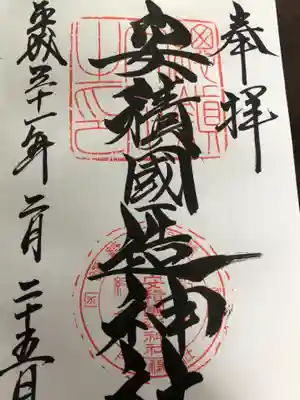 奉拝
安積國造神社
平成三十一年 二月 二十五日